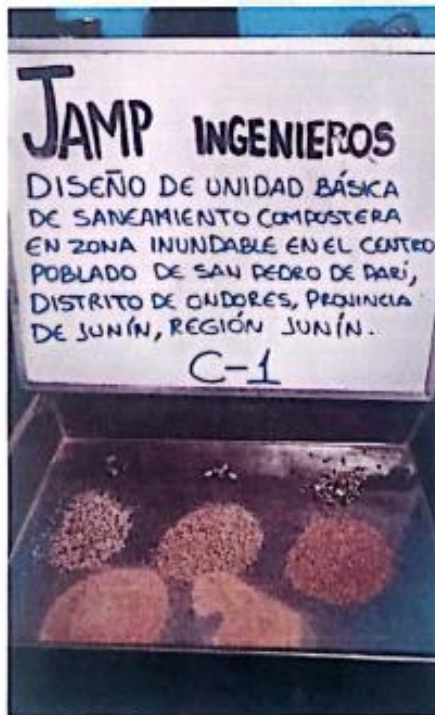 JAMP INGENIEROS
DISEÑO DE UNIDAD BÁSICA
DE SANEAMIENTO COMPOSTERA
EN ZONA INUNDABLE EN EL CENTRO
POBLADO DE SAN PEDRO DE PARÍ,
DISTRITO DE ONDORES, PROVINCIA
DE JUNÍN, REGIÓN JUNÍN.
C-1